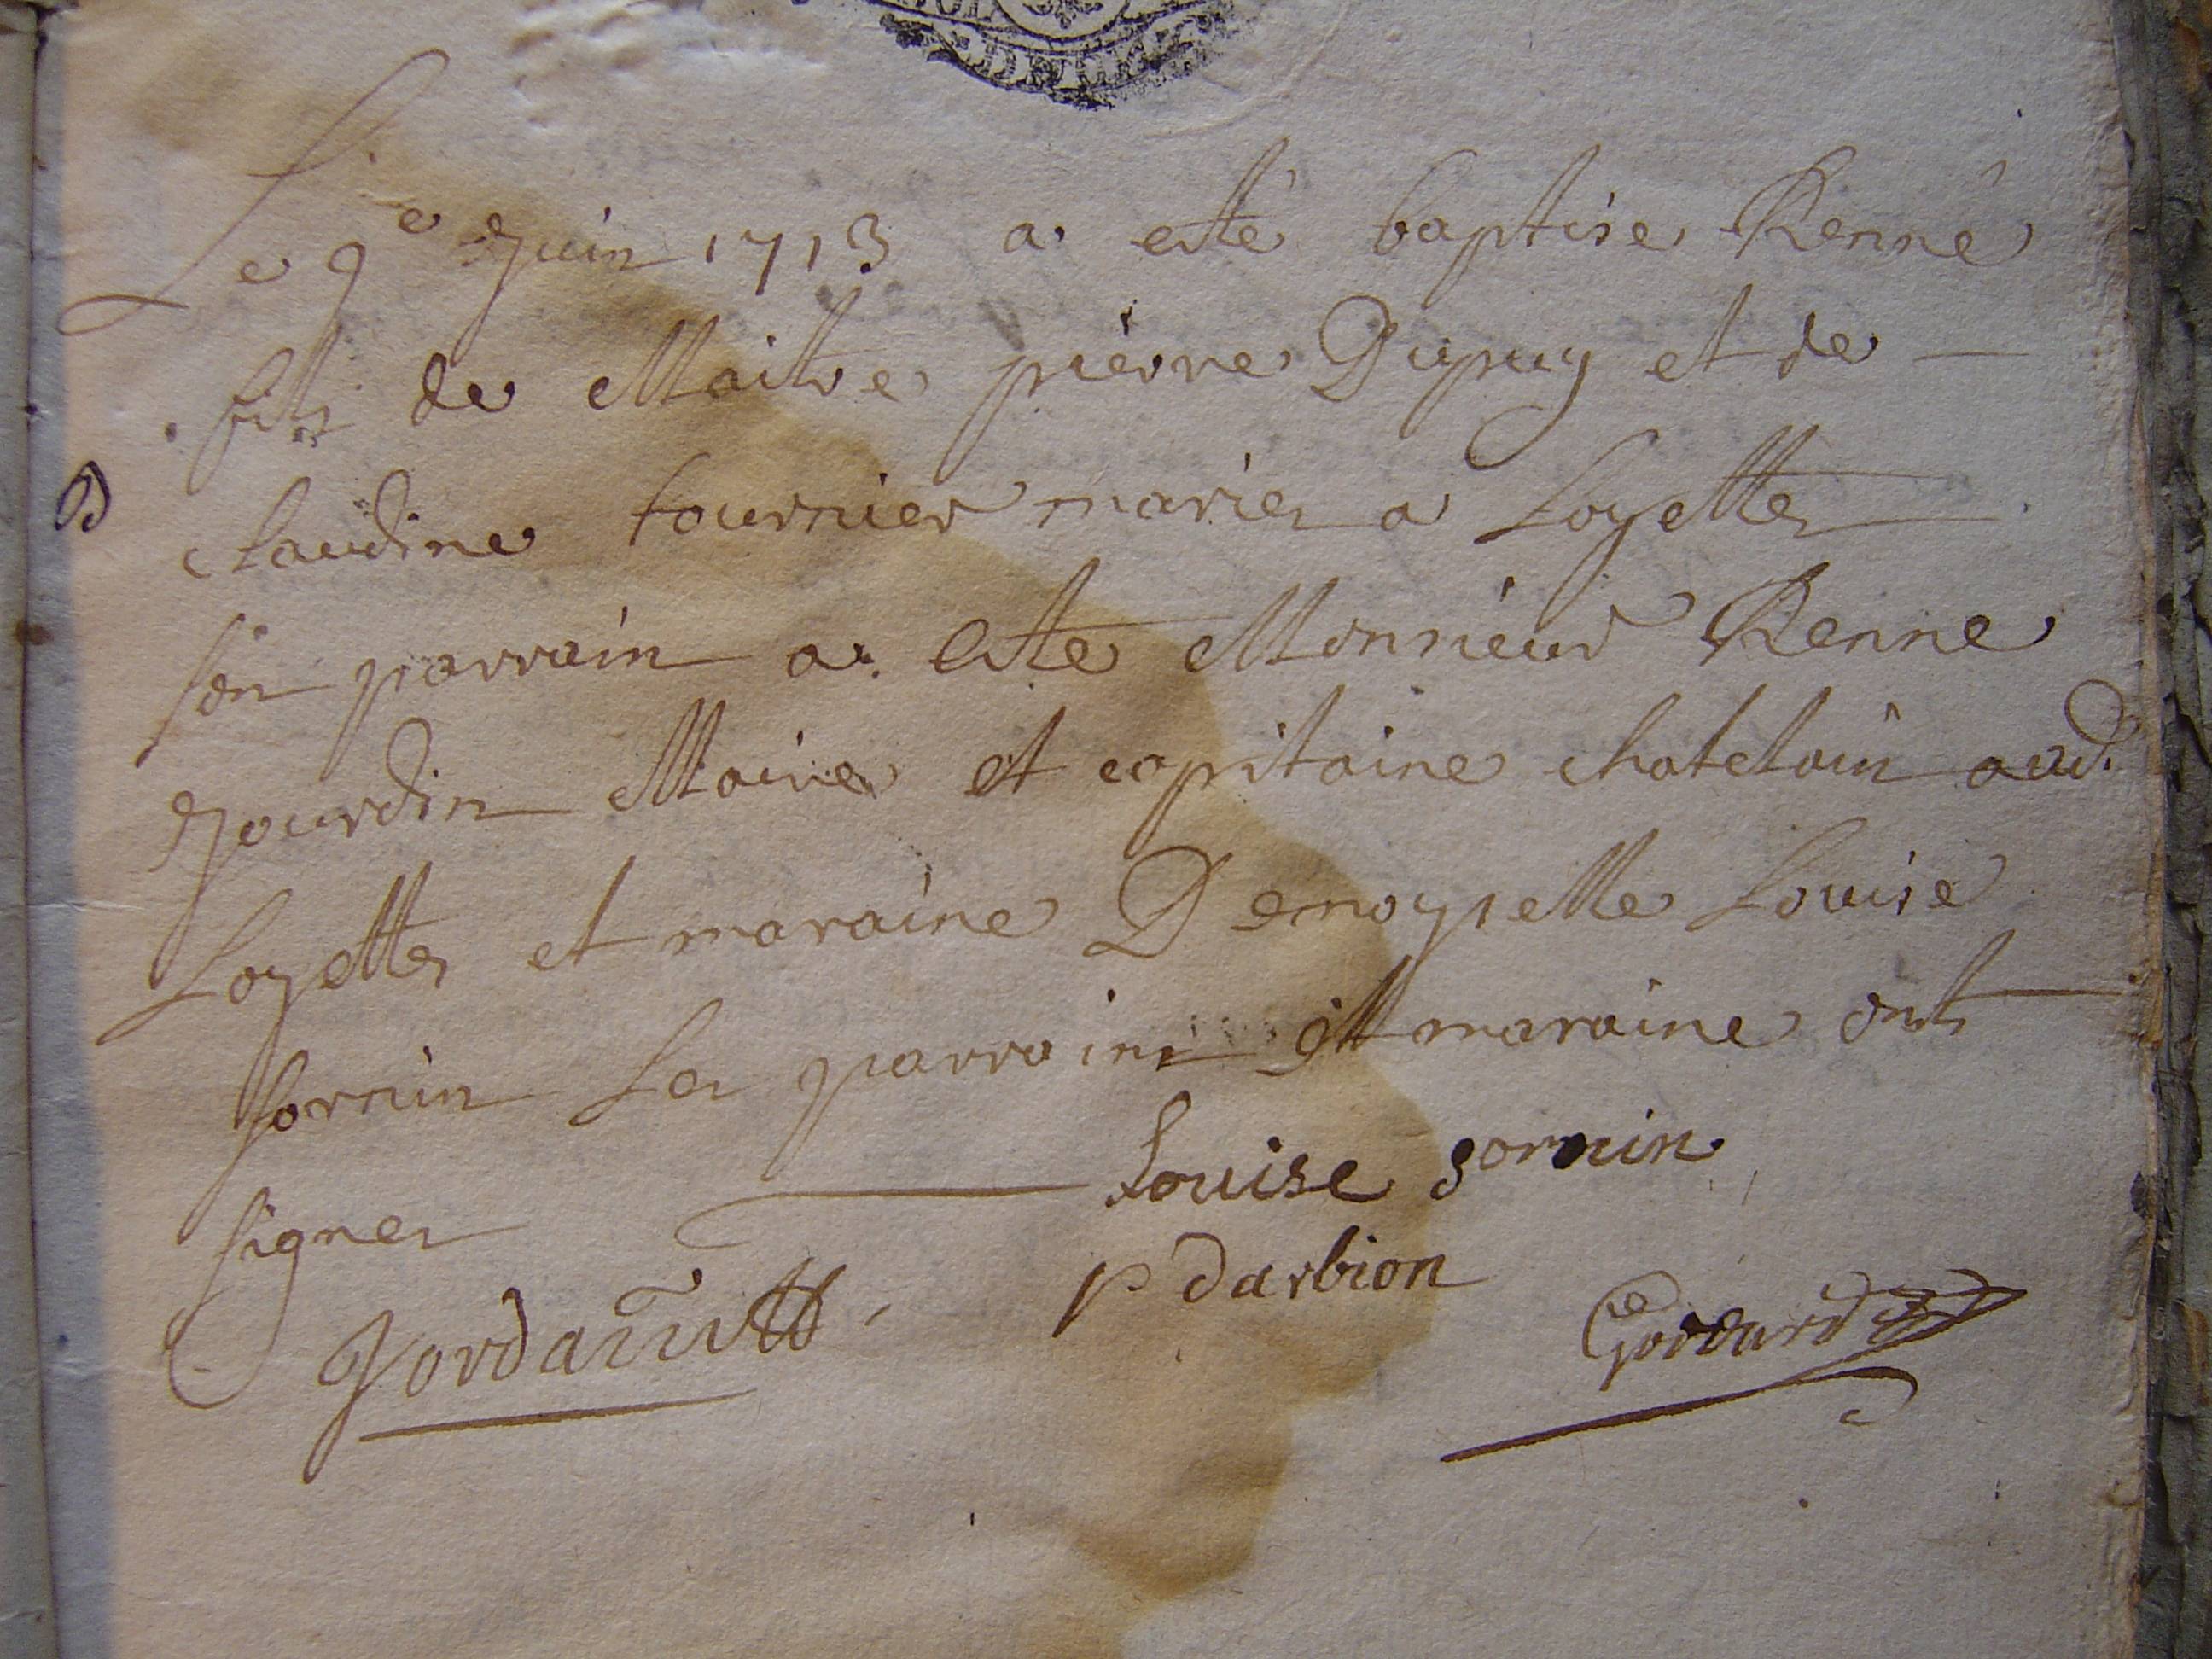 Le 9e Juin 1713 a esté baptise Renné
fils de Maitre pierre Dupuy et de
B claudine fournier maries a Loyettes
son parrain a este Monsieur Renne
Jourdin Maire et capitaine chatelain aud.
Loyettes et maraine Demoyselle Louise
sornin Les parrain et maraine onts
signes
Louise sornin
p darbion